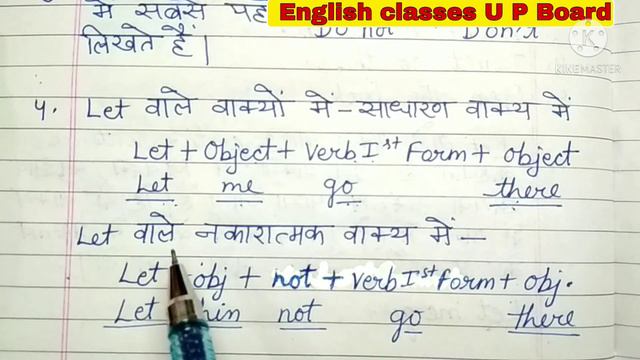 में सबसे
English classes U P Board
Do not Don't
लिखते हैं।
KINEMASTER
4. Let वाले वाक्यों में - साधारण वाक्य में
Let + Object + Verb Ist Form + object
Let me go there
Let वाले नकारात्मक वाक्य में -
Let obj + not + Verb Ist Form + Obj.
Let not go there